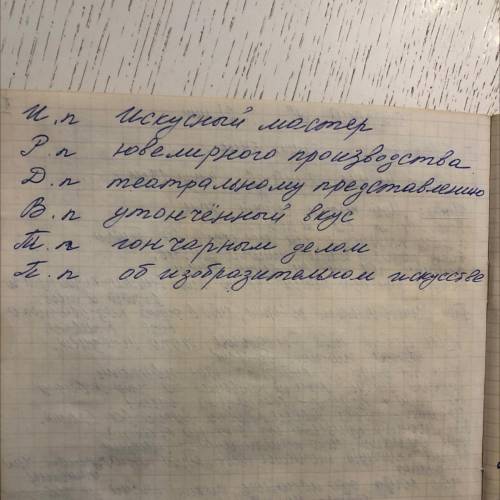 И.п Искусный мастер
Р.п ювелирного производства
Д.п театральному представлению
В.п утончённый вкус
Т.п гончарным делом
П.п об изобразительном искусстве